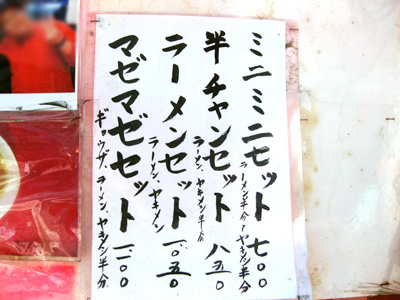 ミニミニセット 七〇〇
ラーメン半分、ヤキメン半分
半チャンセット 八五〇
ラーメン、ヤキメシ半分
ラーメンセット 一〇五〇
ラーメン、ヤキメシ
マゼマゼセット 一一〇〇
ギョウザ、ラーメン、ヤキメシ半分